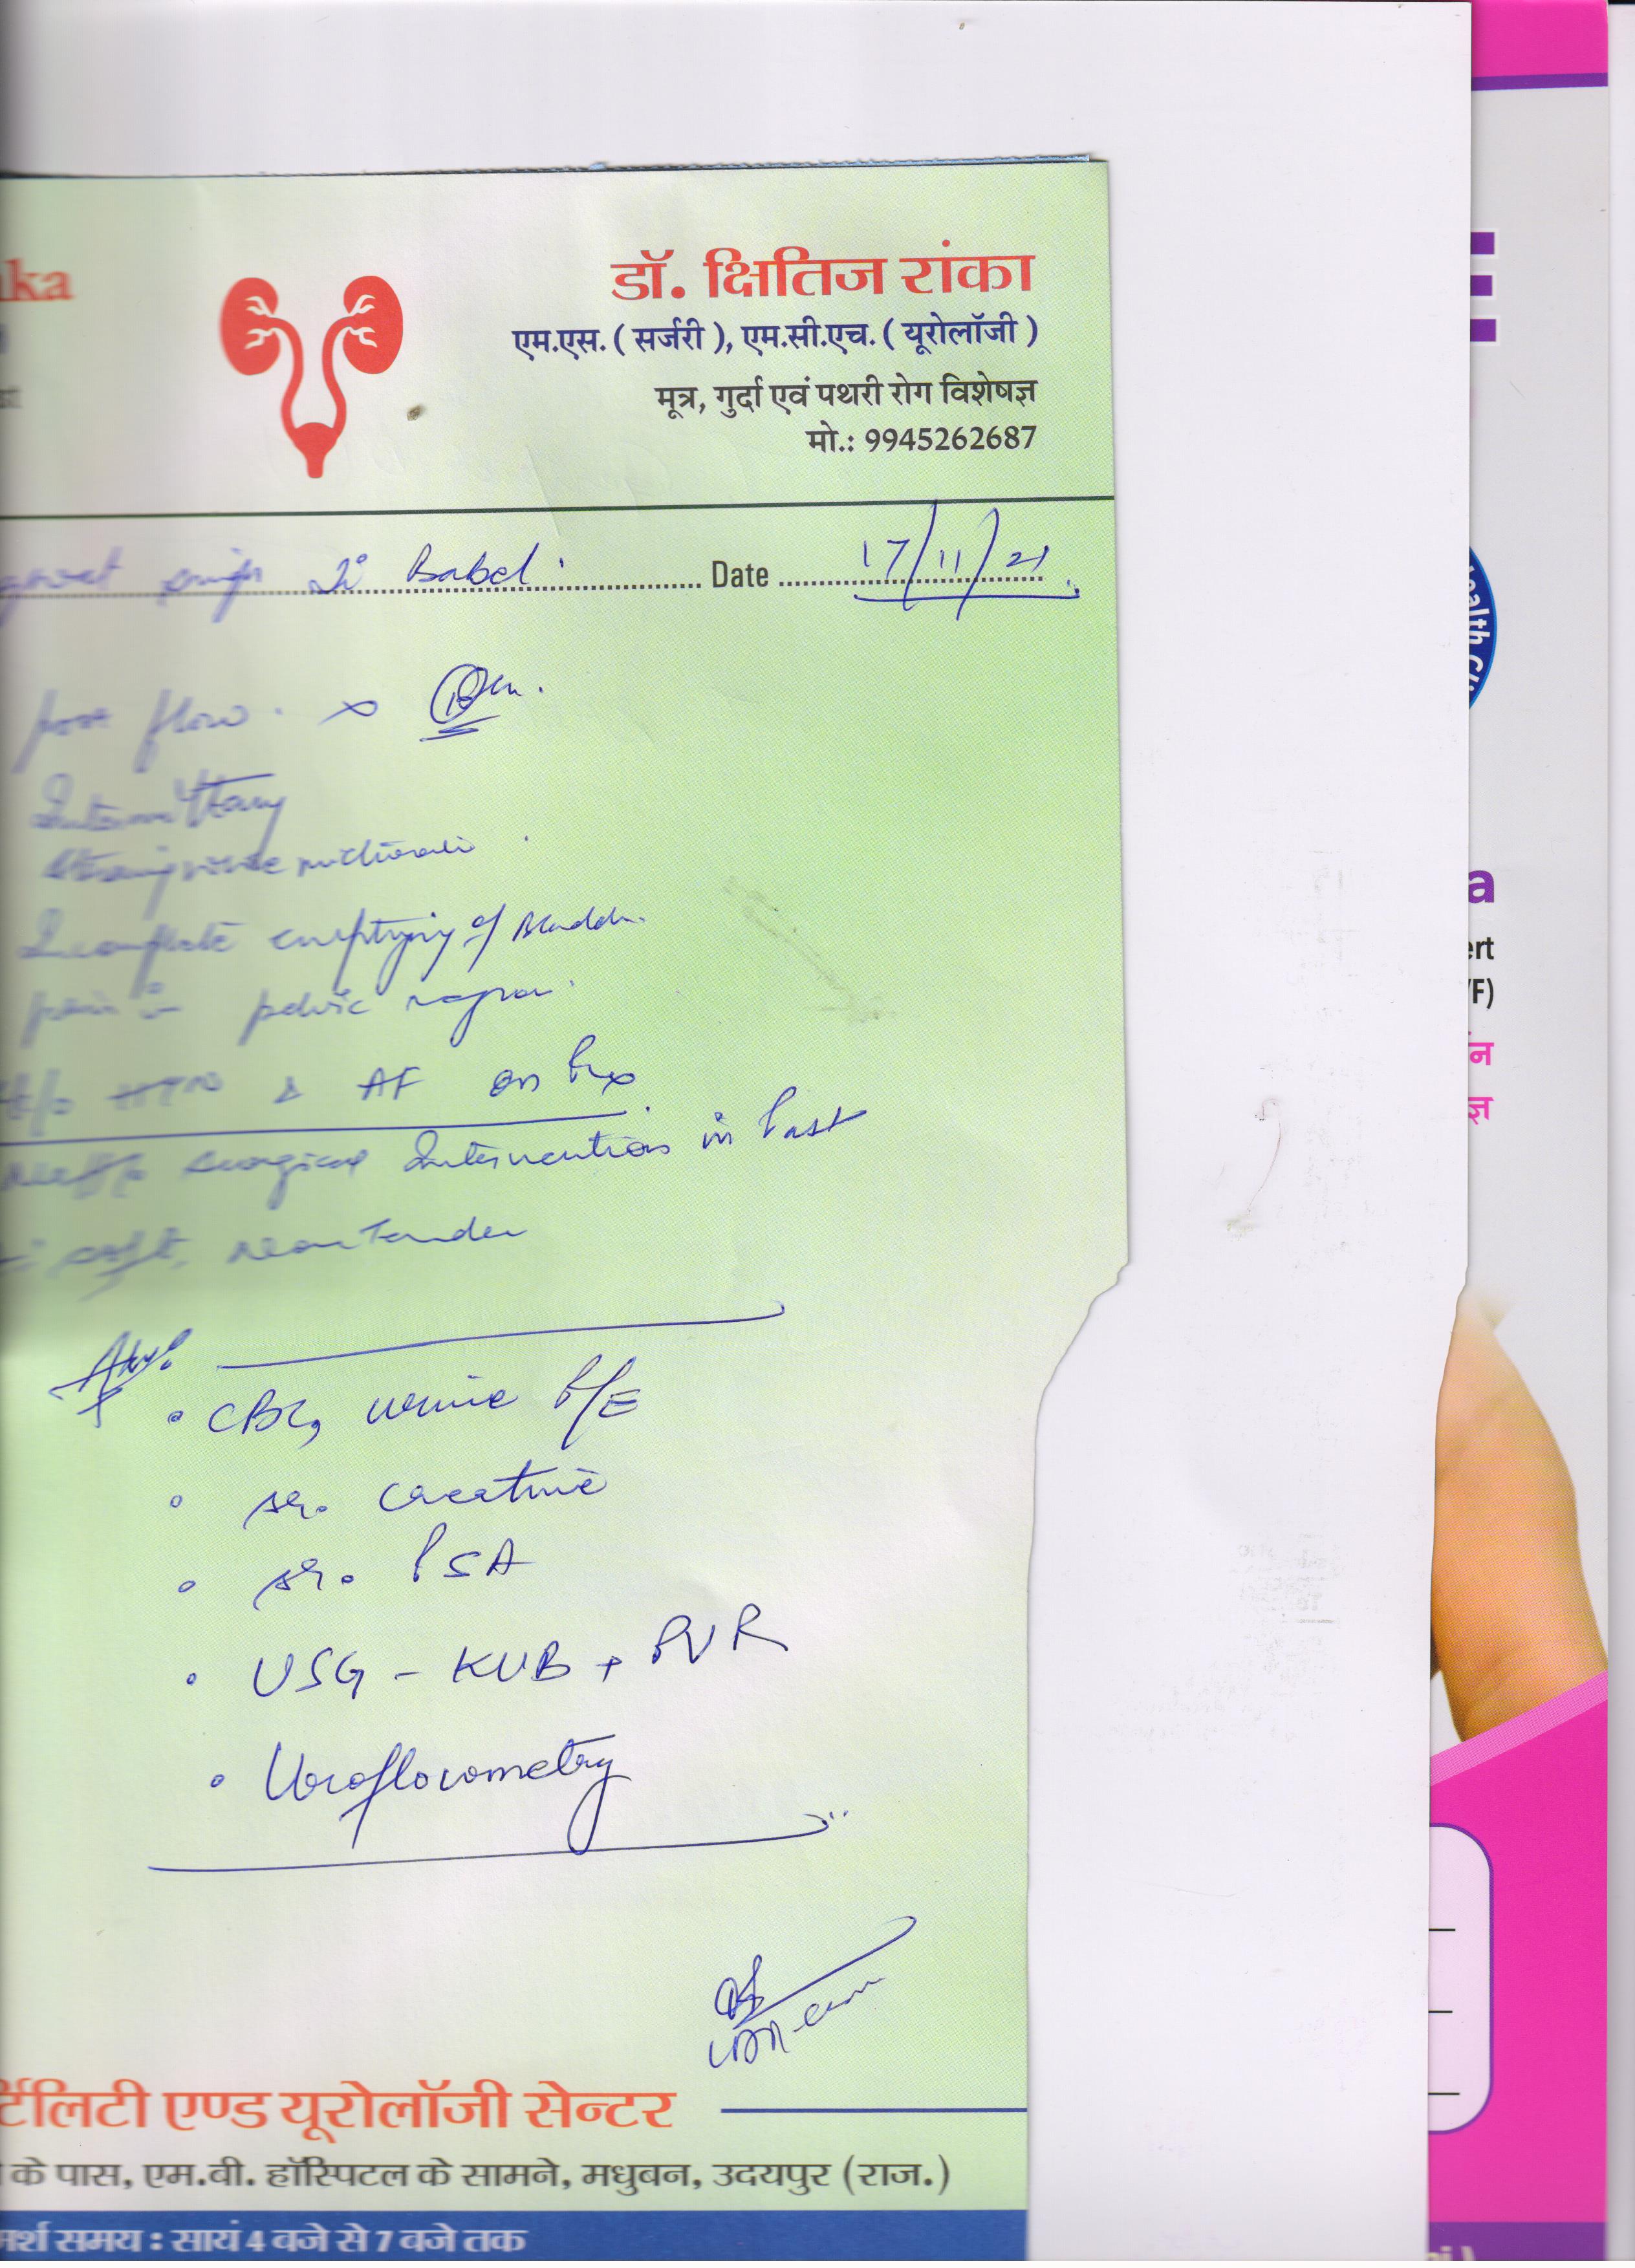 ka
डॉ. क्षितिज रांका
एम.एस. ( सर्जरी ), एम.सी.एच. ( यूरोलॉजी )
st
मूत्र, गुर्दा एवं पथरी रोग विशेषज्ञ
मो.: 9945262687
Babel Date 17/11/21
poor flow.
Intermittency
Incomplete emptying of Bladder
pain in pelvic region.
HTN & AF on Rx
surgical Intervention in Past
soft, non Tender
Adv:
• CBC, urine R/E
• sr. creatine
• sr. PSA
• USG - KUB + PVR
• Uroflowmetry
र्टिलिटी एण्ड यूरोलॉजी सेन्टर
के पास, एम.बी. हॉस्पिटल के सामने, मधुबन, उदयपुर (राज.)
मर्श समय : सायं 4 बजे से 7 बजे तक
E
ealth C
a
ert
F)
न
ज्ञ